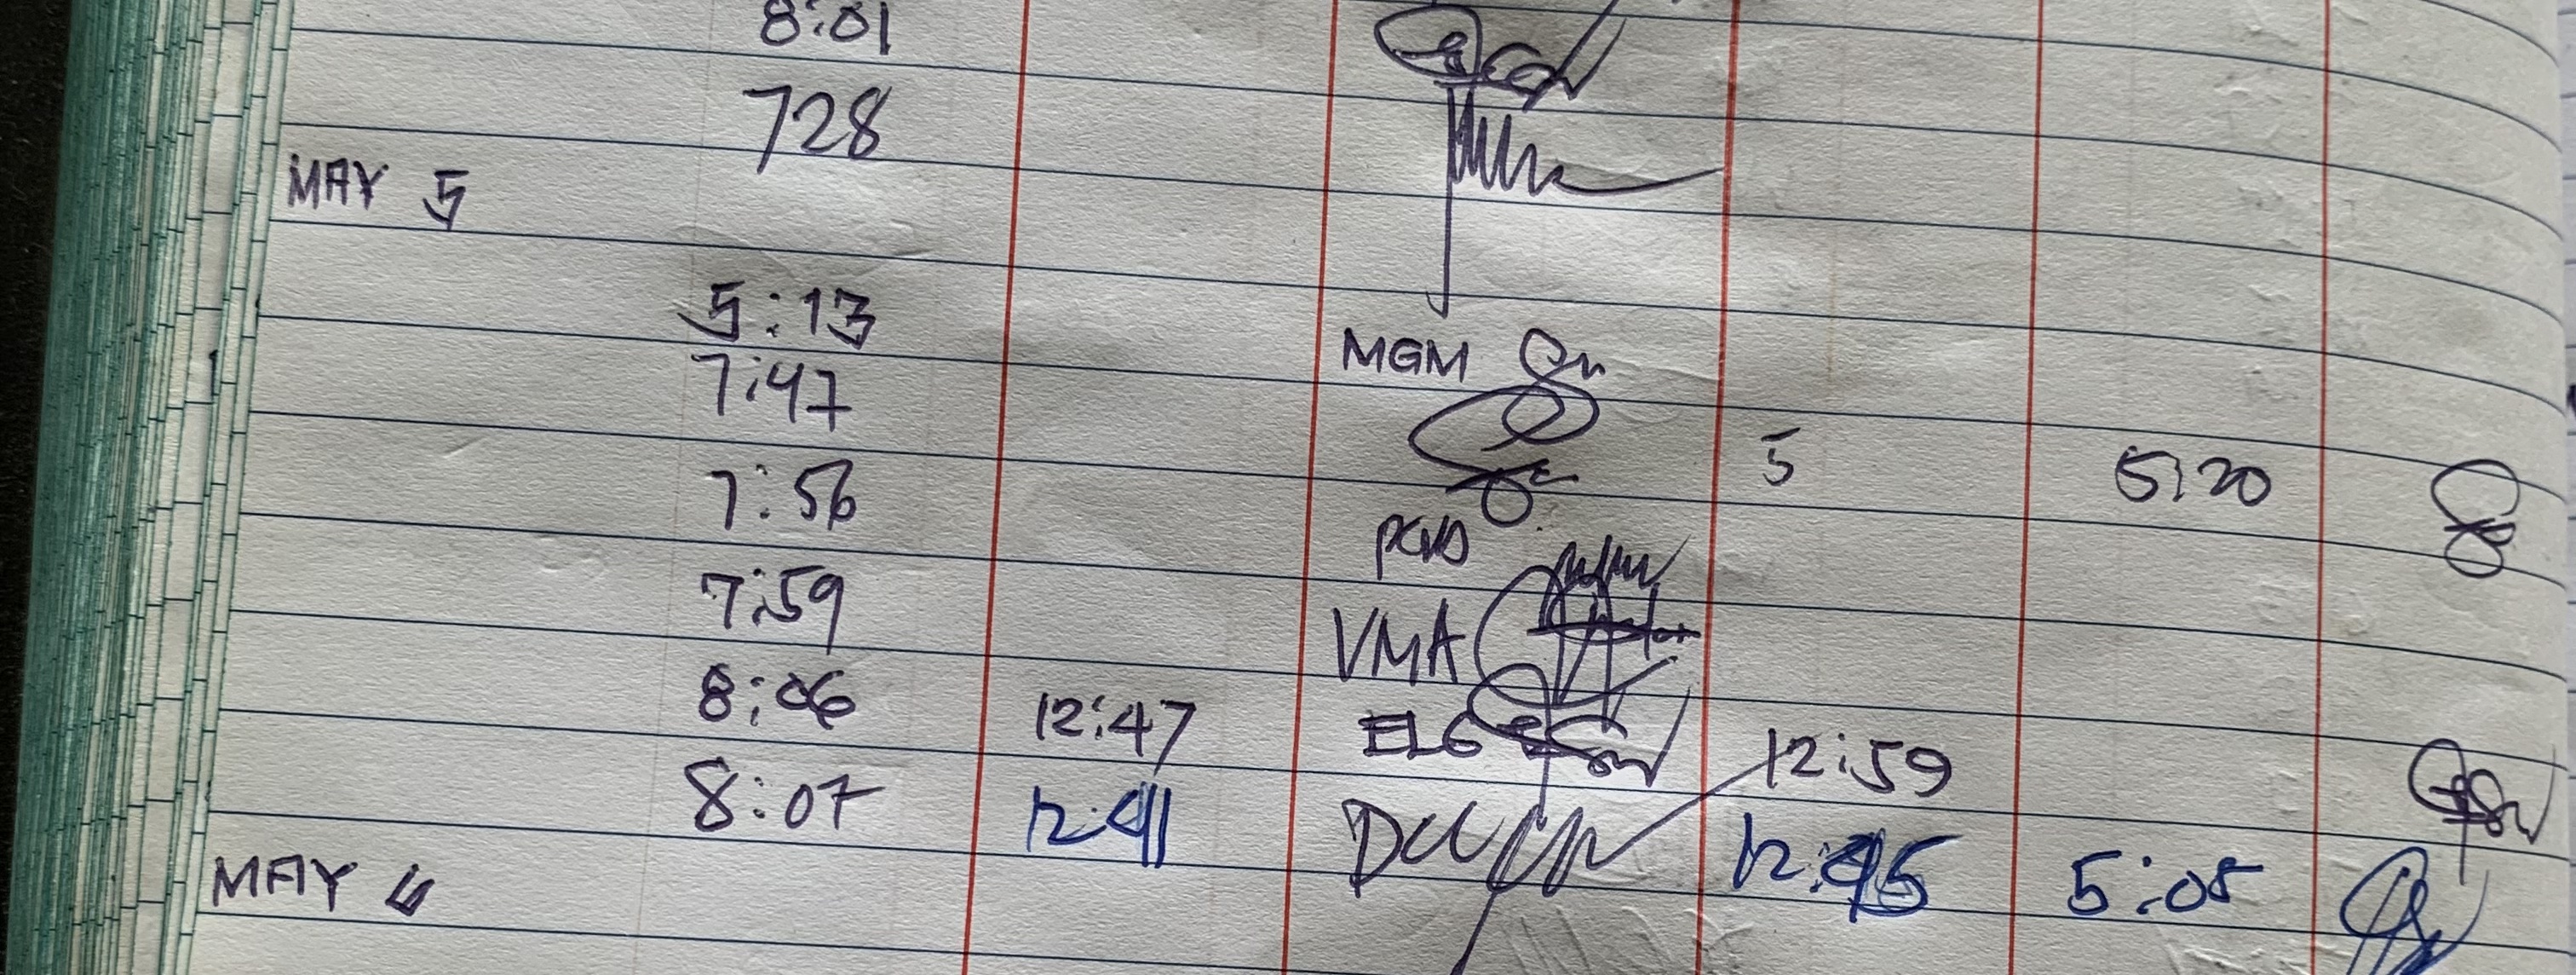 8:01
728
MAY 5
5:13 MGM
7:47
7:56 5 5:20
7:59 VMA
8:06 12:47 ELG 12:59
8:07 12:41 12:45 5:05
MAY 6